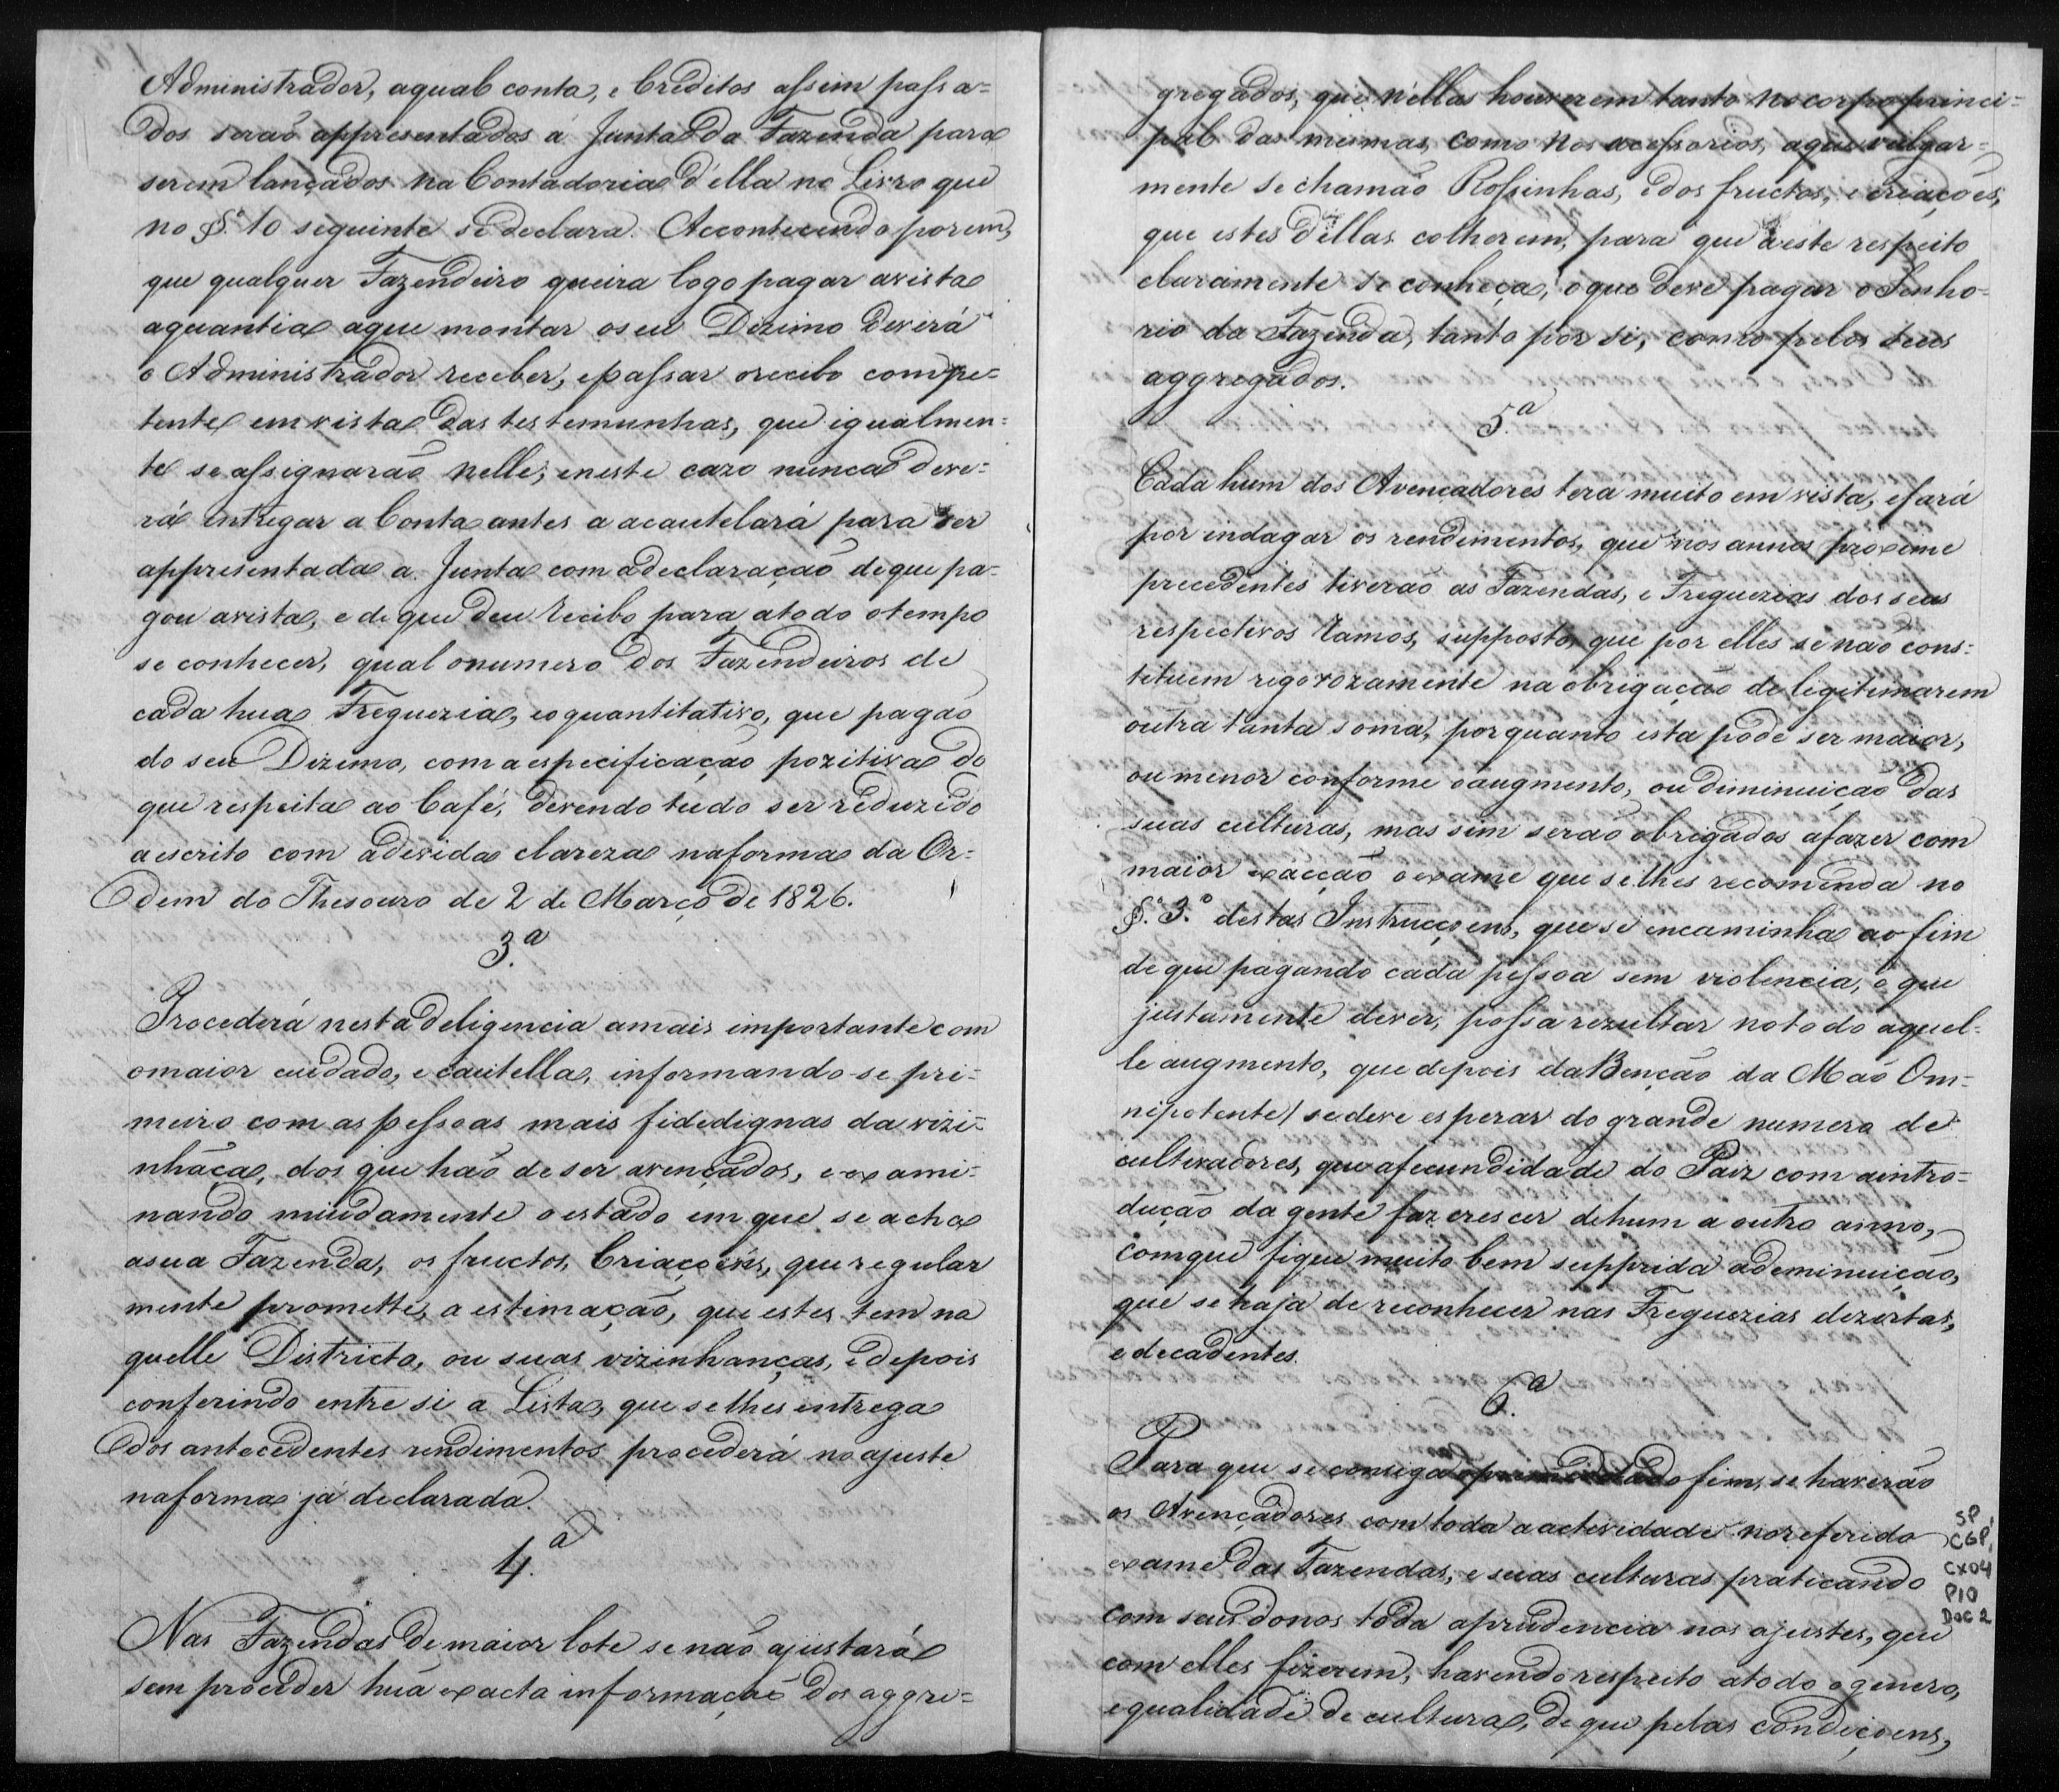 Administrador, aqual conta, e Creditos assim passa=
dos serão appresentados á Junta da Fazenda para
serem lançados na Contadoria d'ella no Livro que
no §.º 10 seguinte se declara. Accontecendo porem,
que qualquer Fazendeiro queira logo pagar avista
aquantia aque montar oseu Dizimo deverá
o Administrador receber, epassar orecibo compe=
tente em vista das testemunhas, que igualmen=
te se assignarão nelle; eneste cazo nunca deve=
rá entregar a Conta antes a acautelará para ser
appresentada a Junta com adeclaração deque pa=
gou avista, e de que deu recibo para atodo otempo
se conhecer, qual onumero dos Fazendeiros de
cada hua Freguezia, eoquantitativo, que pagão
do seu Dizimo, com a especificação pozitiva do
que respeita ao Café, devendo tudo ser reduzido
a escrito com adevida clareza naforma da Or=
dem do Thesouro de 2 de Março de 1826.
3.ª
Procederá nesta deligencia amais importante com
omaior cuidado, e cautella, informando-se pri=
meiro com as pessoas mais fidedignas da vizi=
nhãça, dos que hão de ser avençados, e exami=
nando miudamente o estado em que se acha
asua Fazenda, os fructos, Criaçoens, que regular
mente promette, a estimação, que estes tem na
quelle Districto, ou suas vizinhanças, e depois
conferindo entre si a Lista, que selhes entrega
dos antecedentes rendimentos procederá no ajuste
naforma já declarada.
4.ª
Nas Fazendas de maior lote se não ajustará
sem proceder huã exacta informação dos aggre=
gregados, que n'ellas houverem tanto no corpo princi=
pal das mesmas, como nos acessorios, aque vulgar=
mente se chamão Rossinhas, e dos fructos, e criações,
que estes d'ellas colherem, para que a este respeito
claramente se conheça, oque deve pagar o Senho=
rio da Fazenda, tanto por si, como pelos seus
aggregados.
5.ª
Cada hum dos Avençadores tera muito em vista, efará
por indagar os rendimentos, que nos annos proximé
precedentes tiverão as Fazendas, e Freguezias dos seus
respectivos ramos, supposto, que por elles se não cons=
tituem rigorozamente na obrigação de legitimarem
outra tanta soma, porquanto esta pode ser maior,
ou menor conforme oaugmento, ou diminuição das
suas culturas, mas sim serão obrigados afazer com
maior exacção oexame que selhes recomenda no
§.º 3.º destas Instrucçoens, que se encaminha ao fim
deque pagando cada pessoa sem violencia, o que
justamente dever, possa rezultar notodo aquel=
le augmento, que depois da Benção da Mão Om=
nipotente / sedeve esperar do grande numero de
cultivadores, que afecundidade do Paiz com aintro=
dução da gente faz crescer dehum a outro anno,
comque fique muito bem supprida ademinuição,
que se haja de reconhecer nas Freguezias dezertas,
e decadentes.
6.ª
Para que se consiga fim, se haverão
os Avençadores com toda a actividade noreferido
exame das Fazendas, e suas culturas praticando
com seus donos toda aprudencia nos ajustes, que
com elles fizerem, havendo respeito atodo ogenero,
equalidade de cultura, de que pelas Condiçoens,
SP,
CGP,
CX04
P10
Doc 2